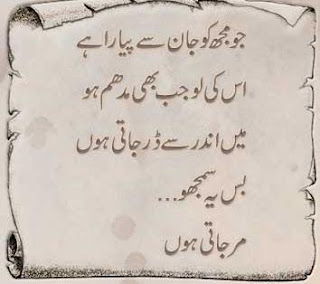 جو مجھ کو جان سے پیارا ہے
اس کی لو جب بھی مدھم ہو
میں اندر سے ڈر جاتی ہوں
بس یہ سمجھو...
مر جاتی ہوں